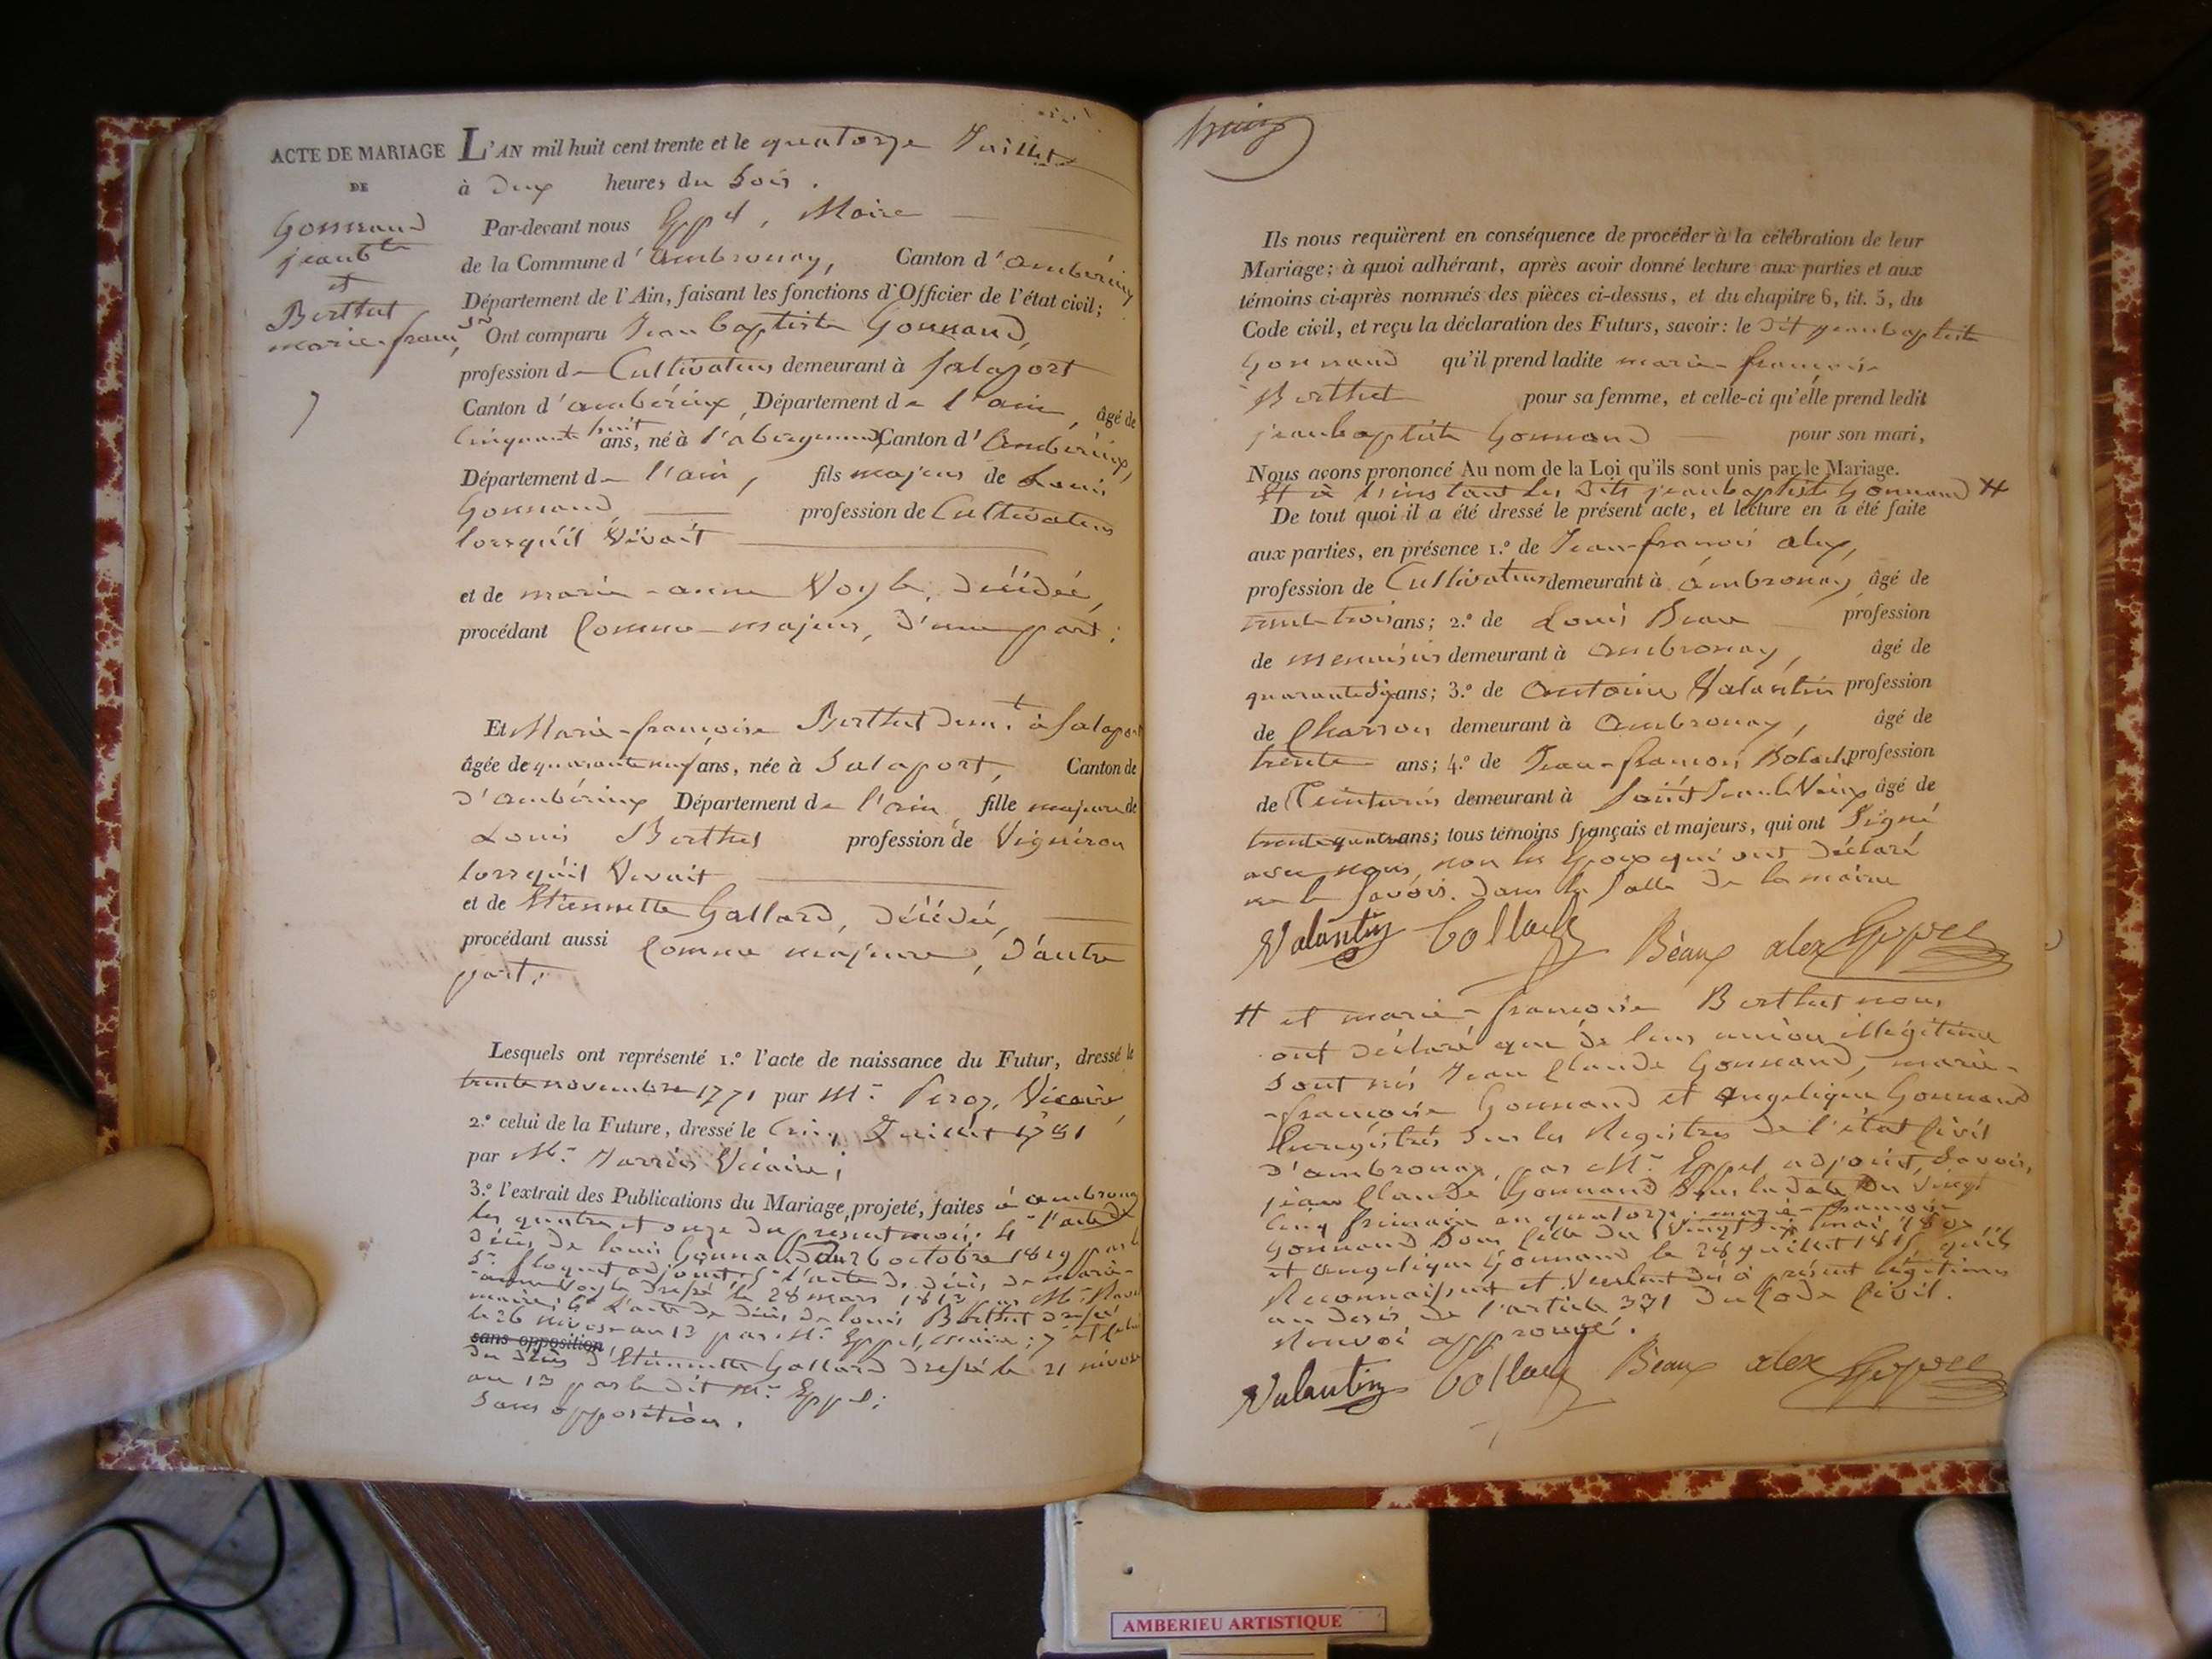 ACTE DE MARIAGE
DE
Gonnand
jean bte
et
Berthet
marie-franç.
L'AN mil huit cent trente et le quatorze Juillet
à deux heures du Soir.
Par-devant nous Eppel, Maire
de la Commune d'ambronay, Canton d'ambérieux
Département de l'Ain, faisant les fonctions d'Officier de l'état civil;
Ont comparu Jean baptiste Gonnand,
profession de Cultivateur demeurant à Salaport
Canton d'ambérieux, Département de l'ain, âgé de
Cinquante huit ans, né à Canton d'Ambérieux,
Département de l'ain, fils majeur de Louis
Gonnand, profession de Cultivateur
lorsqu'il Vivait
et de marie-anne Voyle, décédée,
procédant Comme majeur, d'une part;
Et Marie-françoise Berthet demt. à Salaport
âgée de quarante neuf ans, née à Salaport, Canton de
d'ambérieux Département de l'ain, fille majeure de
Louis Berthet profession de Vigneron
lorsqu'il Vivait
et de Etiennette Gallard, décédée,
procédant aussi Comme majeure, d'autre
part;
Lesquels ont représenté 1.º l'acte de naissance du Futur, dressé le
trente novembre 1771 par Mr. Vicaire
2.º celui de la Future, dressé le Cinq Juillet 1781
par Mr. Vicaire;
3.º l'extrait des Publications du Mariage projeté, faites à ambronay
les quatre et onze du present mois; 4º l'acte de
décès de louis Gonnand du 26 octobre 1819 par le
Sr. adjoint; 5º l'acte de décès de marie-
anne Voyle dressé le 28 mars par Mr.
maire; 6º L'acte de décès de louis Berthet dressé
le 26 nivose an 13 par Mr. Eppel, maire; 7º et celui
sans opposition
du décès d'Etiennette Gallard dressé le 21 nivose
an 13 par le dit Mr. Eppel;
Sans opposition.
Ils nous requièrent en conséquence de procéder à la célébration de leur
Mariage; à quoi adhérant, après avoir donné lecture aux parties et aux
témoins ci-après nommés des pièces ci-dessus, et du chapitre 6, tit. 5, du
Code civil, et reçu la déclaration des Futurs, savoir: le dit jean baptiste
Gonnand qu'il prend ladite marie-françoise
Berthet pour sa femme, et celle-ci qu'elle prend ledit
jean baptiste Gonnand pour son mari,
Nous avons prononcé Au nom de la Loi qu'ils sont unis par le Mariage.
Et à l'instant les dits jean baptiste Gonnand #
De tout quoi il a été dressé le présent acte, et lecture en a été faite
aux parties, en présence 1.º de Jean-françois alex,
profession de Cultivateur demeurant à ambronay, âgé de
trente trois ans; 2.º de Louis Beau profession
de menuisier demeurant à ambronay, âgé de
quarante six ans; 3.º de antoine Valentin profession
de Charron demeurant à ambronay, âgé de
trente ans; 4.º de Jean-françois profession
de Teinturier demeurant à Saint Jean le Vieux âgé de
trente quatre ans; tous témoins français et majeurs, qui ont Signé
avec nous, non les époux qui ont déclaré
ne le Savoir. dans la Salle de la mairie
Valantin Collard Béaux alex Eppel
# et marie-françoise Berthet nous
ont déclaré que de leur union illégitime
Sont nés Jean Claude Gonnand, marie-
-françoise Gonnand et angelique Gonnand
Enregistrés Sur les Registres de l'état Civil
d'ambronay, par Mr. Eppel, adjoint, Savoir,
jean Claude Gonnand Sous la date du Vingt
Cinq frimaire an quatorze; marie-françoise
Gonnand Sous celle du Vingt Six mai 1807
et angelique Gonnand le 28 juillet 1815, qu'ils
Reconnaissent et Veulent dès à présent légitimer
au desir de l'article 331 du Code Civil.
Renvoi approuvé.
Valantin Collard Béaux alex Eppel
AMBERIEU ARTISTIQUE